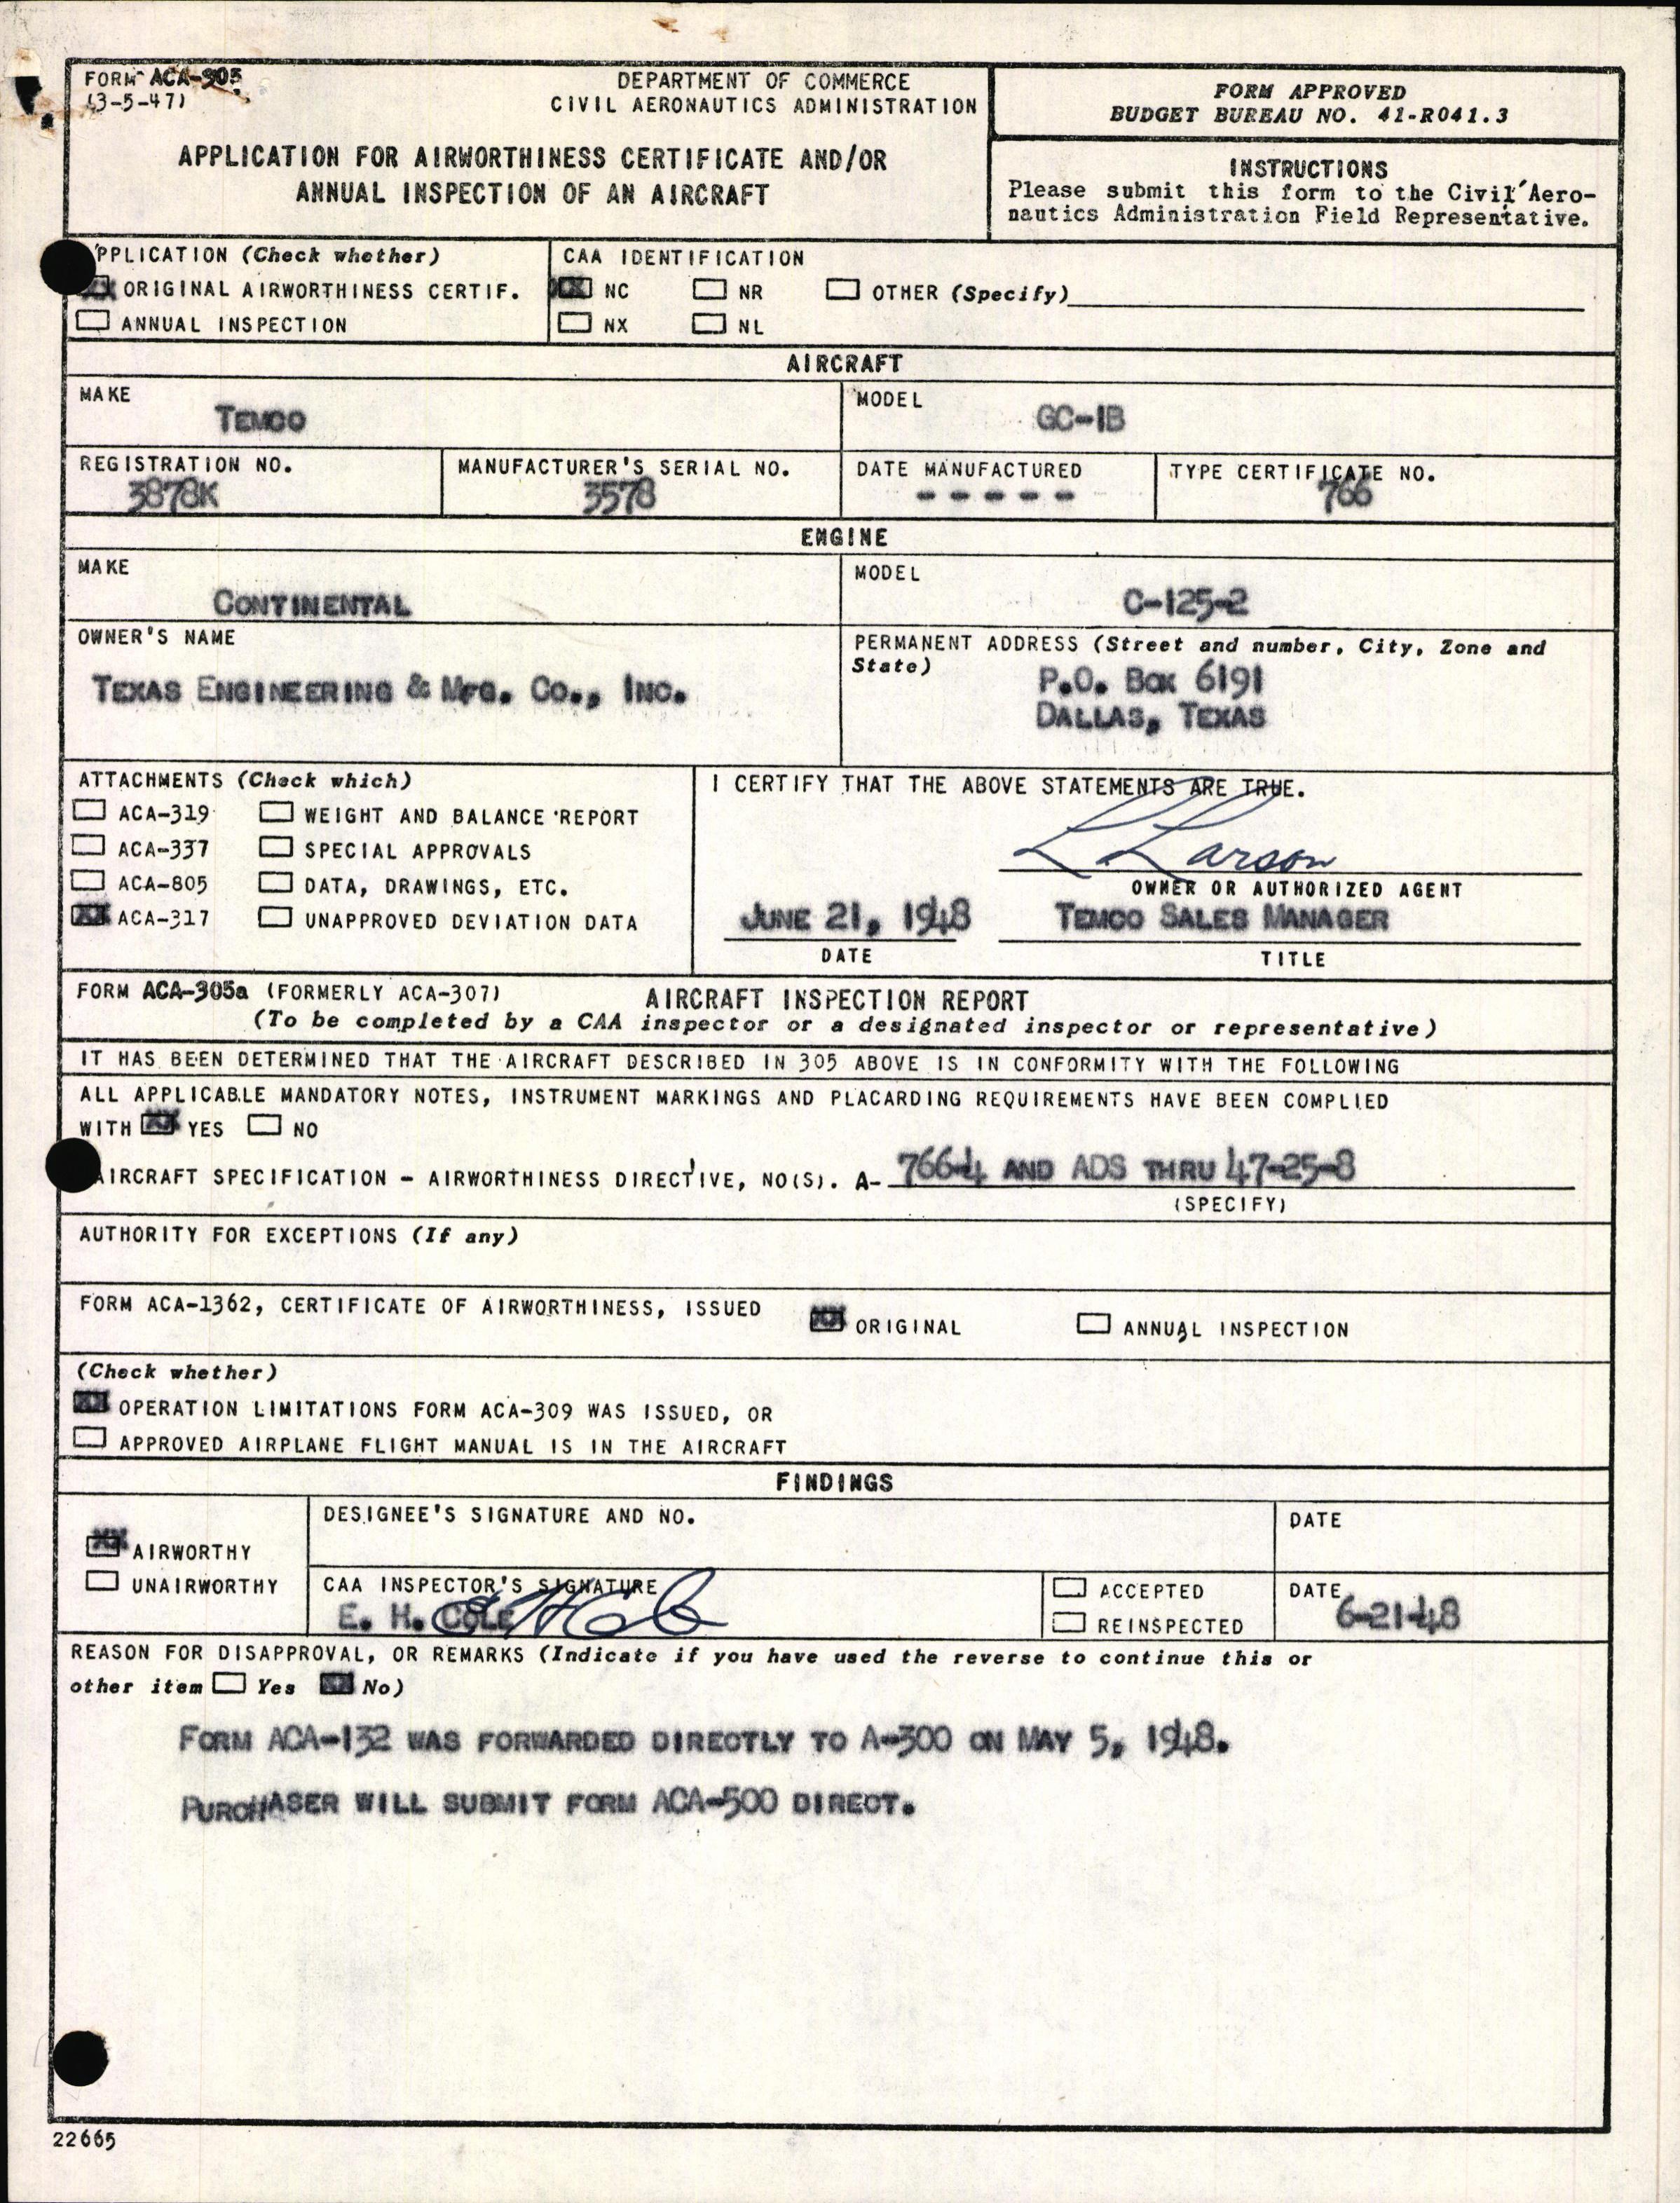 FORM ACA-305
(3-5-47)
DEPARTMENT OF COMMERCE
CIVIL AERONAUTICS ADMINISTRATION
APPLICATION FOR AIRWORTHINESS CERTIFICATE AND/OR
ANNUAL INSPECTION OF AN AIRCRAFT
FORM APPROVED
BUDGET BUREAU NO. 41-R041.3
INSTRUCTIONS
Please submit this form to the Civil Aero-
nautics Administration Field Representative.
PPLICATION (Check whether)
XX ORIGINAL AIRWORTHINESS CERTIF.
ANNUAL INSPECTION
CAA IDENTIFICATION
XX NC NR OTHER (Specify)
NX NL
AIRCRAFT
MAKE
TEMCO
MODEL
GC-1B
REGISTRATION NO.
3878K
MANUFACTURER'S SERIAL NO.
3578
DATE MANUFACTURED
- - - - -
TYPE CERTIFICATE NO.
766
ENGINE
MAKE
CONTINENTAL
MODEL
C-125-2
OWNER'S NAME
TEXAS ENGINEERING & MFG. CO., INC.
PERMANENT ADDRESS (Street and number, City, Zone and
State)
P.O. BOX 6191
DALLAS, TEXAS
ATTACHMENTS (Check which)
ACA-319 WEIGHT AND BALANCE REPORT
ACA-337 SPECIAL APPROVALS
ACA-805 DATA, DRAWINGS, ETC.
XX ACA-317 UNAPPROVED DEVIATION DATA
I CERTIFY THAT THE ABOVE STATEMENTS ARE TRUE.
L Larson
OWNER OR AUTHORIZED AGENT
JUNE 21, 1948 TEMCO SALES MANAGER
DATE TITLE
FORM ACA-305a (FORMERLY ACA-307) AIRCRAFT INSPECTION REPORT
(To be completed by a CAA inspector or a designated inspector or representative)
IT HAS BEEN DETERMINED THAT THE AIRCRAFT DESCRIBED IN 305 ABOVE IS IN CONFORMITY WITH THE FOLLOWING
ALL APPLICABLE MANDATORY NOTES, INSTRUMENT MARKINGS AND PLACARDING REQUIREMENTS HAVE BEEN COMPLIED
WITH XX YES NO
AIRCRAFT SPECIFICATION - AIRWORTHINESS DIRECTIVE, NO(S). A- 766-4 AND ADS THRU 47-25-8
(SPECIFY)
AUTHORITY FOR EXCEPTIONS (If any)
FORM ACA-1362, CERTIFICATE OF AIRWORTHINESS, ISSUED XX ORIGINAL ANNUAL INSPECTION
(Check whether)
XX OPERATION LIMITATIONS FORM ACA-309 WAS ISSUED, OR
APPROVED AIRPLANE FLIGHT MANUAL IS IN THE AIRCRAFT
FINDINGS
XX AIRWORTHY
UNAIRWORTHY
DESIGNEE'S SIGNATURE AND NO.
DATE
CAA INSPECTOR'S SIGNATURE
E. H. COLE E H Cole
ACCEPTED
REINSPECTED
DATE
6-21-48
REASON FOR DISAPPROVAL, OR REMARKS (Indicate if you have used the reverse to continue this or
other item Yes XX No)
FORM ACA-132 WAS FORWARDED DIRECTLY TO A-300 ON MAY 5, 1948.
PURCHASER WILL SUBMIT FORM ACA-500 DIRECT.
22665